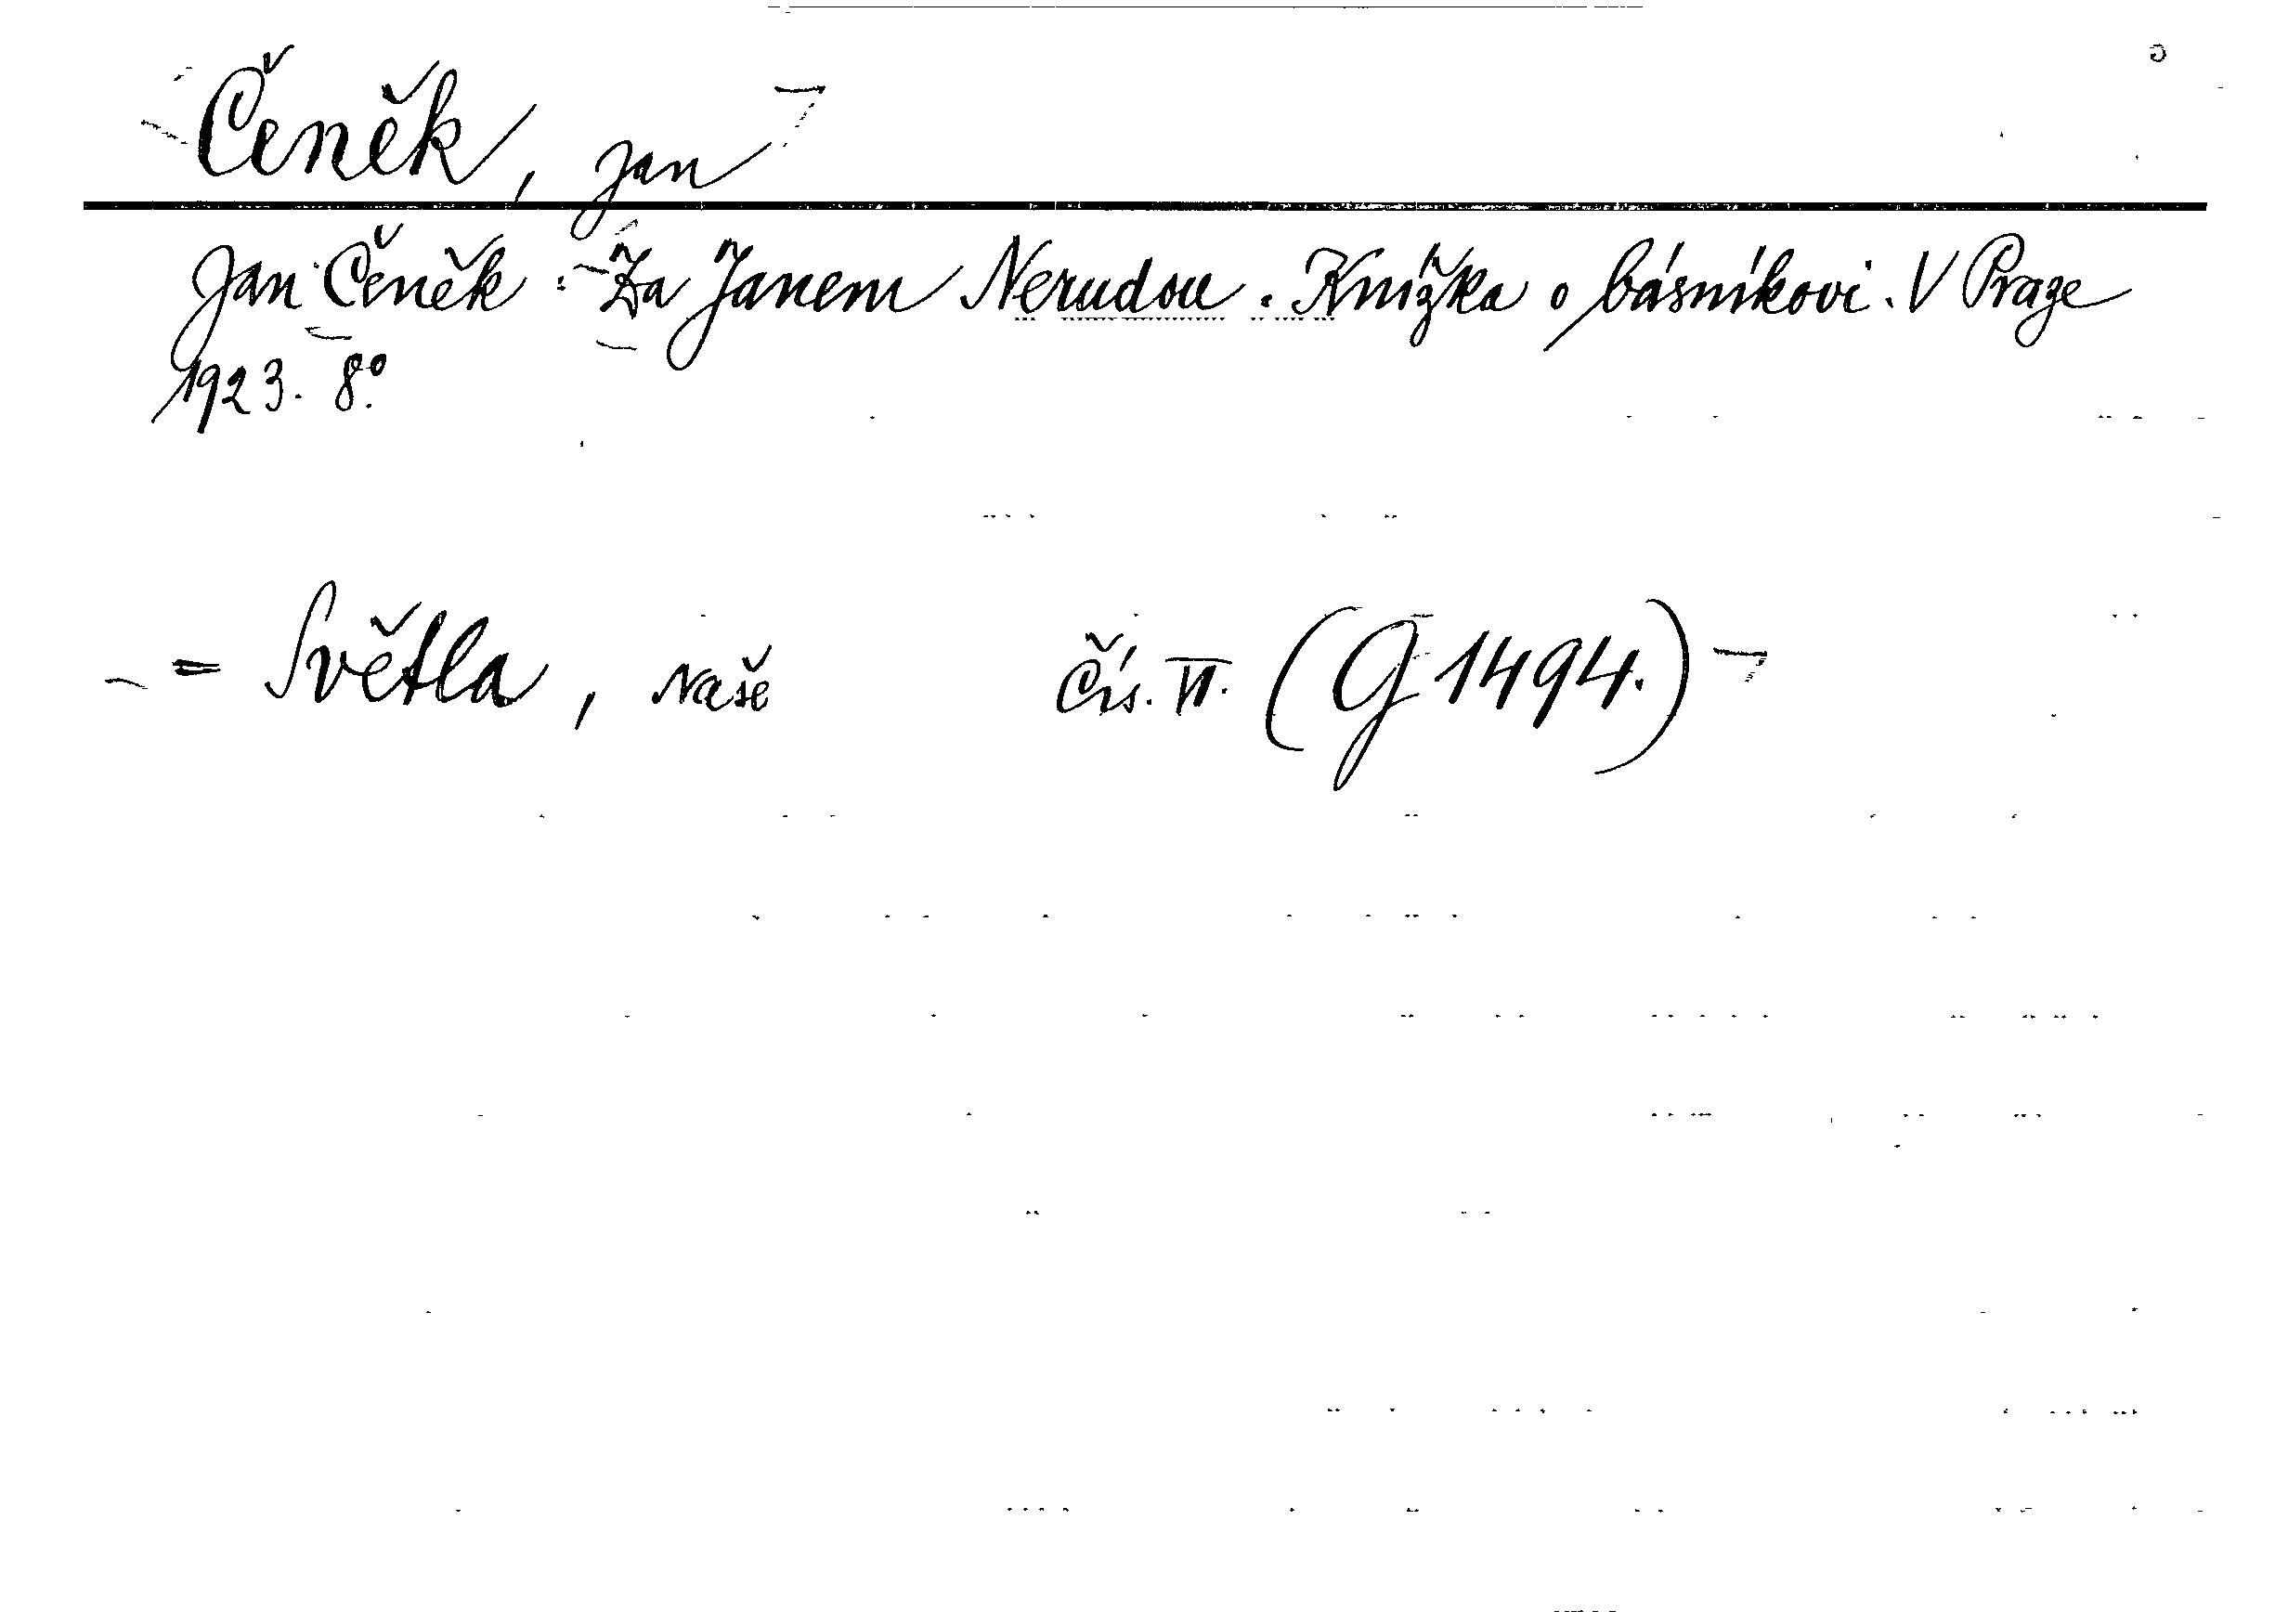 Čeněk, Jan
Jan Čeněk: Za Janem Nerudou. Knížka o básníkovi. V Praze
1923. 8°.
= Světla, Naše čís. VI. (G 1494.)